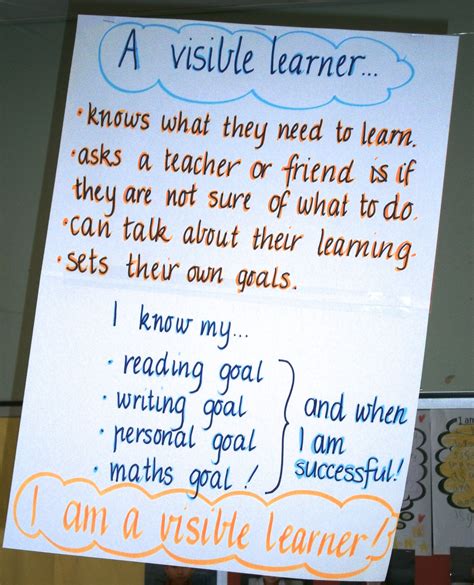 A visible learner...
• knows what they need to learn.
• asks a teacher or friend is if
they are not sure of what to do.
• can talk about their learning.
• sets their own goals.
I know my...
• reading goal
• writing goal
• personal goal
• maths goal !
and when
I am
successful!
I am a visible learner!